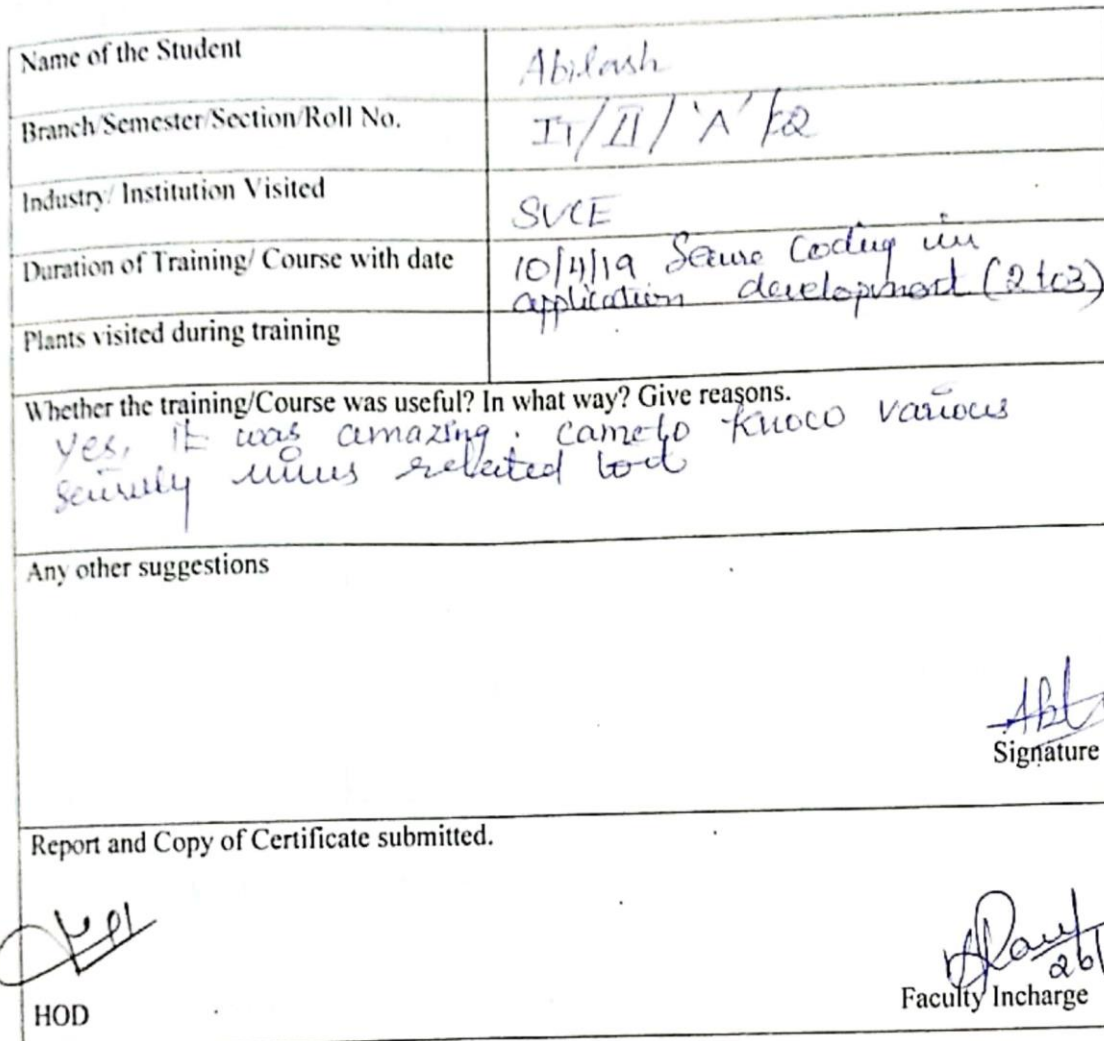 Name of the Student
Abilash
Branch/Semester/Section/Roll No.
IT/II/'A'/
Industry/ Institution Visited
SVCE
Duration of Training/ Course with date
10/4/19 Secure Coding in
application development (2 to 3)
Plants visited during training
Whether the training/Course was useful? In what way? Give reasons.
Yes, it was amazing. came to know various
related
Any other suggestions
Signature
Report and Copy of Certificate submitted.
26/
HOD
Faculty Incharge